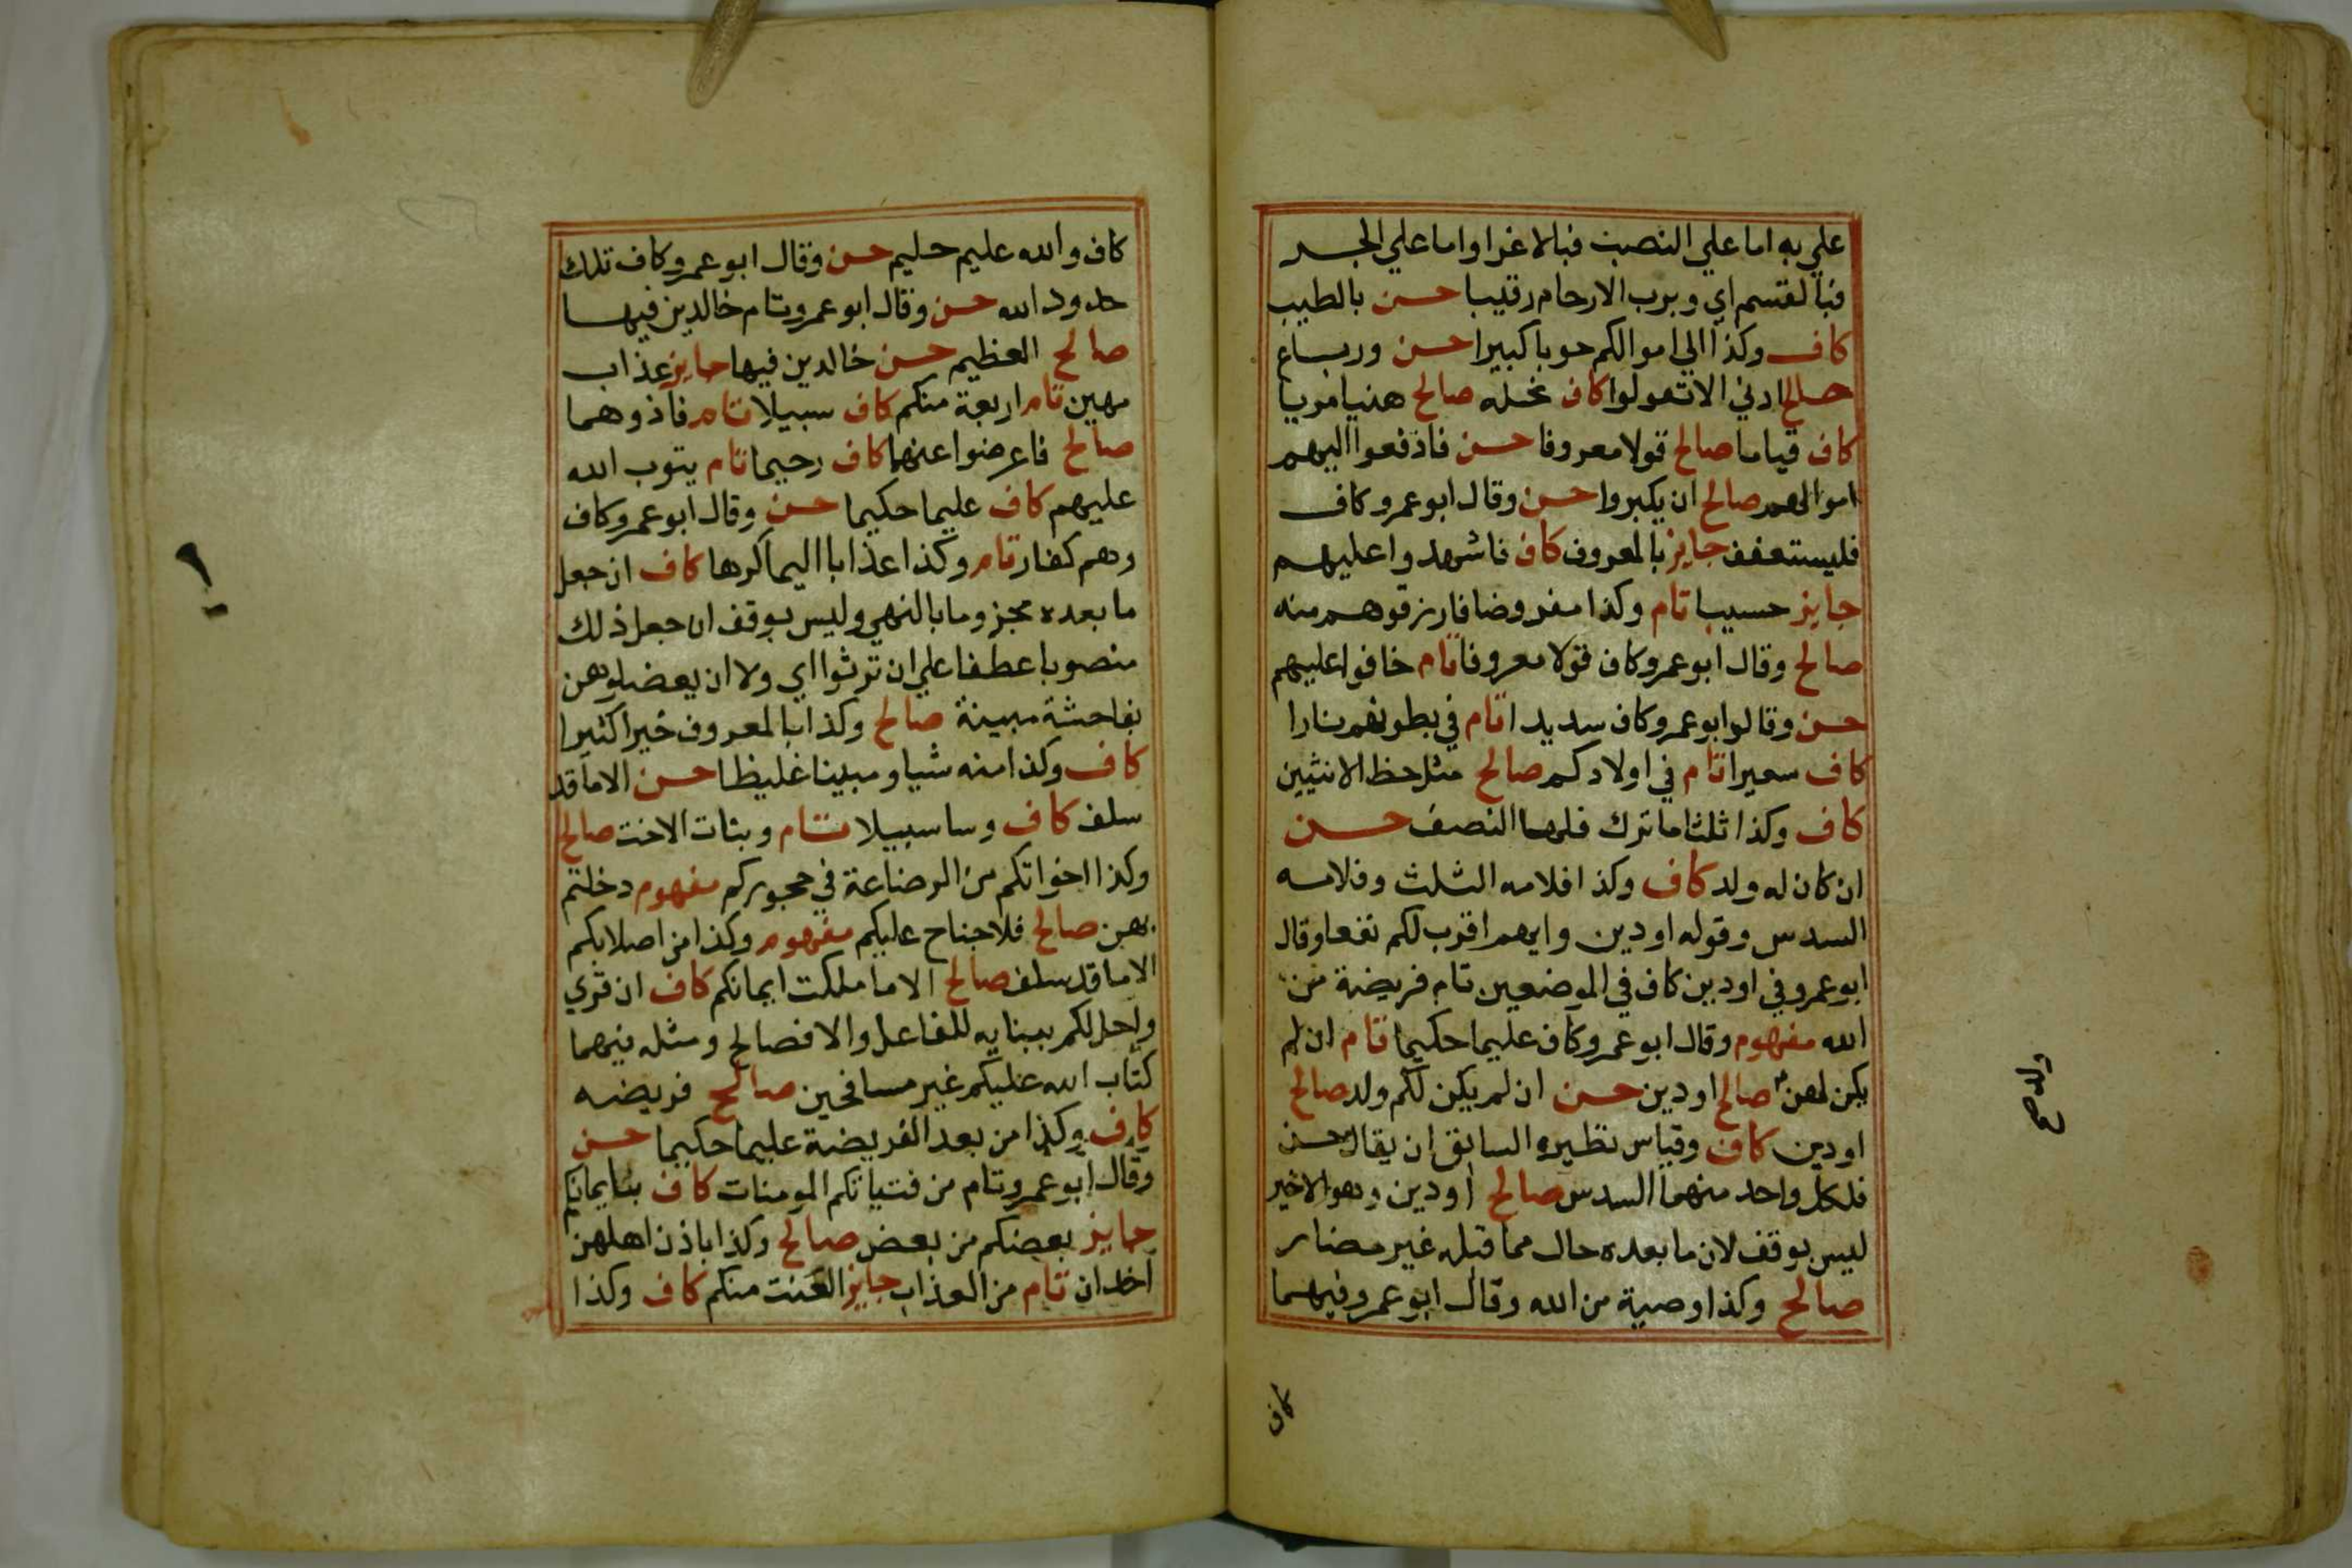 علي به اما علي النصب فبالاغرا واما علي الجر
فبالقسم اي وبرب الارحام رقيبا حسن بالطيب
كاف وكذا الي اموالكم حوبا كبيرا حسن ورباع
صالح ادني الا تعولوا كاف نحله صالح هنيا مريا
كاف قياما صالح قولا معروفا حسن فادفعوا اليهم
اموالهم صالح ان يكبروا حسن وقال ابو عمرو كاف
فليستعفف جايز بالمعروف كاف فاشهدوا عليهم
جايز حسيبا تام وكذا مفروضا فارزقوهم منه
صالح وقال ابو عمرو كاف قولا معروفا تام خافوا عليهم
حسن وقالوا ابو عمرو كاف سديدا تام في بطونهم نارا
كاف سعيرا تام في اولادكم صالح مثل حظ الانثيين
كاف وكذا ثلثا ما ترك فلها النصف حسن
ان كان له ولد كاف وكذا فلامه الثلث وفلامه
السدس وقوله او دين وايهم اقرب لكم نفعا وقال
ابو عمرو في او دين كاف في الموضعين تام فريضة من
الله مفهوم وقال ابو عمرو كاف عليما حكيما تام ان لم
يكن لهن صالح او دين حسن ان لم يكن لكم ولد صالح
او دين كاف وقياس نظيره السابق ان يقال حسن
فلكل واحد منهما السدس صالح او دين وهو الاخير
ليس بوقف لان ما بعده حال مما قبله غير مضار
صالح وكذا وصية من الله وقال ابو عمرو فيهما
ولد ح
كاف
كاف والله عليم حليم حسن وقال ابو عمرو كاف تلك
حدود الله حسن وقال ابو عمرو تام خالدين فيها
صالح العظيم حسن خالدين فيها جايز عذاب
مهين تام اربعة منكم كاف سبيلا تام فآذوهما
صالح فاعرضوا عنهما كاف رحيما تام يتوب الله
عليهم كاف عليما حكيما حسن وقال ابو عمرو كاف
وهم كفار تام وكذا عذابا اليما كرها كاف ان جعل
ما بعده مجزوما بالنهي وليس بوقف ان جعل ذلك
منصوبا عطفا علي ان ترثوا اي ولا ان يعضلوهن
بفاحشة مبينة صالح وكذا بالمعروف خيرا كثيرا
كاف وكذا منه شيا ومبينا غليظا حسن الا ما قد
سلف كاف وسا سبيلا تام وبنات الاخت صالح
وكذا اخواتكم من الرضاعة في حجوركم مفهوم دخلتم
بهن صالح فلا جناح عليكم مفهوم وكذا من اصلابكم
الا ما قد سلف صالح الا ما ملكت ايمانكم كاف ان قري
واحل لكم ببنايه للفاعل والا فصالح ومثله فيهما
كتاب الله عليكم غير مسافحين صالح فريضه
كاف وكذا من بعد الفريضة عليما حكيما حسن
وقال ابو عمرو تام من فتياتكم المومنات كاف بايمانكم
جايز بعضكم من بعض صالح وكذا باذن اهلهن
اخدان تام من العذاب جايز العنت منكم كاف وكذا